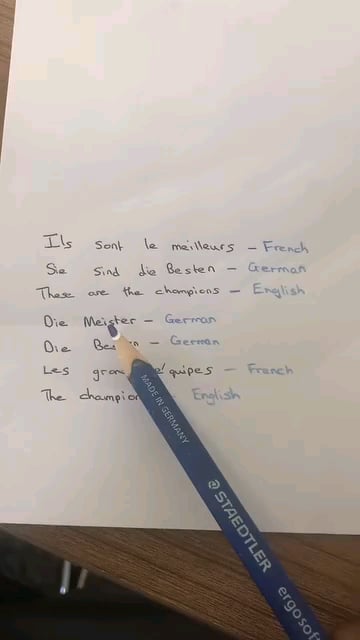 Ils sont le meilleurs - French
Sie sind die Besten - German
These are the champions - English
Die Meister - German
Die - German
Les - French
The - English
MADE IN GERMANY
STAEDTLER
ergosoft